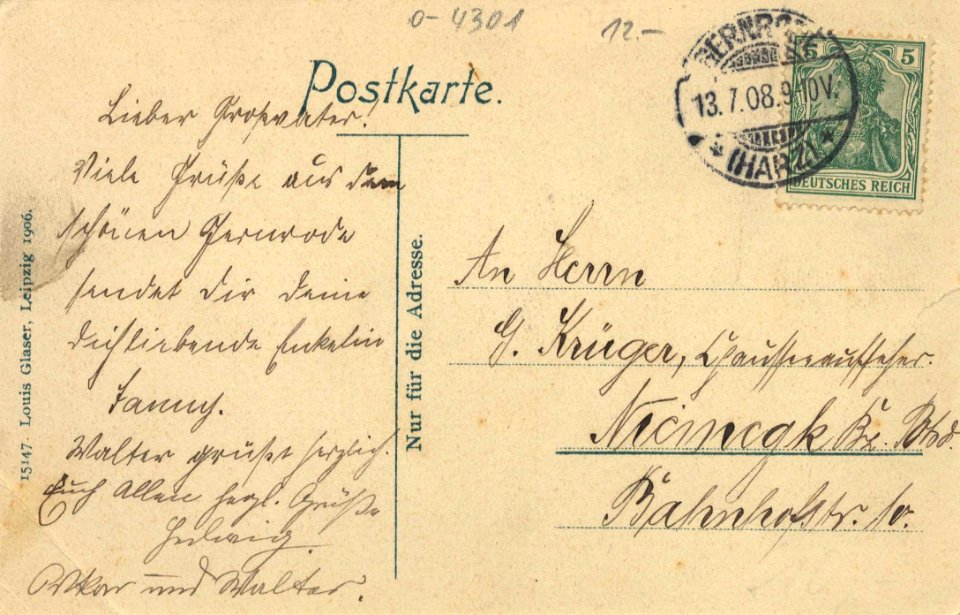 0-4301
12.-
GERNRODE
13.7.08.9-10V.
* (HARZ) *
5 5
DEUTSCHES REICH
Postkarte.
Lieber Großvater!
Viele Grüße aus dem
schönen Gernrode
sendet Dir Deine
Dichliebende Enkelin
Fanny.
Walter grüßt herzlich.
Euch Allen herzl. Grüße
Hedwig
Oskar und Walter.
An Herrn
G. Krüger, Chausseeaufseher.
Niemegk Bz. Ptsd.
Bahnhofstr. 10.
Nur für die Adresse.
15147. Louis Glaser, Leipzig 1906.